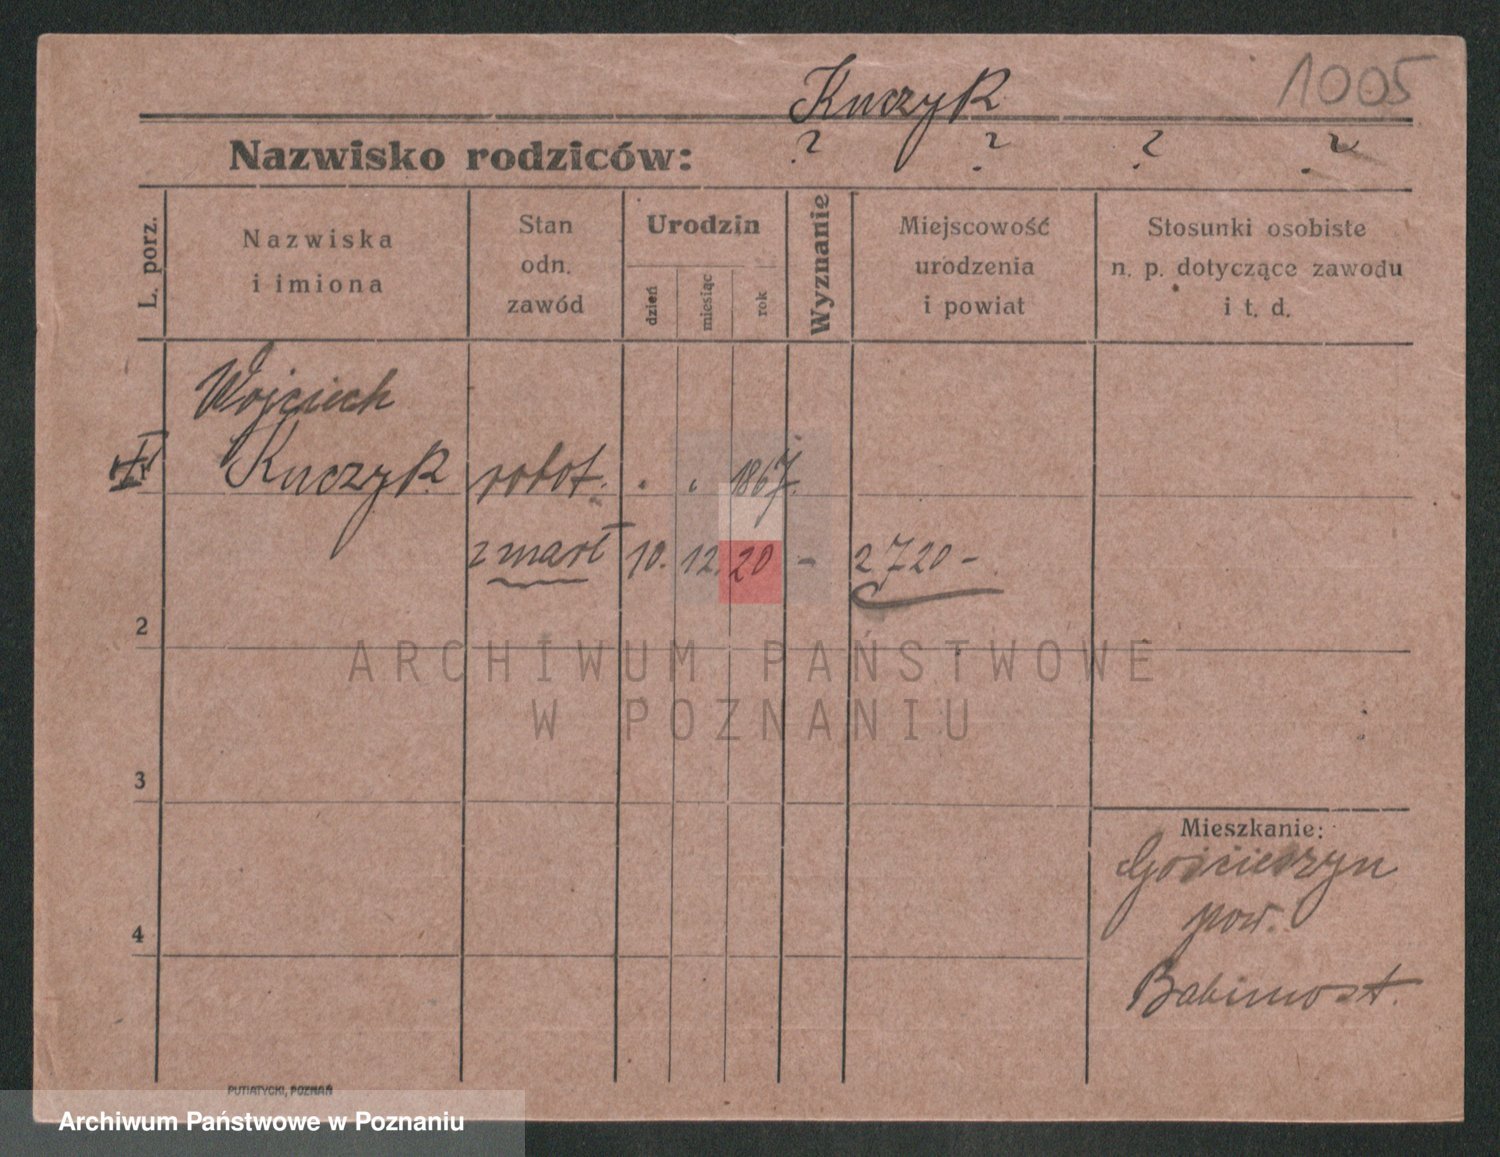 Kuczyk
1005
Nazwisko rodziców: ? ? ? ?
L. porz.
Nazwiska
i imiona
Stan
odn.
zawód
Urodzin
dzień
miesiąc
rok
Wyznanie
Miejscowość
urodzenia
i powiat
Stosunki osobiste
n. p. dotyczące zawodu
i t. d.
Wojciech
1 Kuczyk robot. . . 1867.
zmarł 10. 12. 20 - 2720-
2
ARCHIWUM PAŃSTWOWE
W POZNANIU
3
Mieszkanie:
Gościeszyn
pow.
Babimost.
4
PUTIATYCKI, POZNAŃ
Archiwum Państwowe w Poznaniu